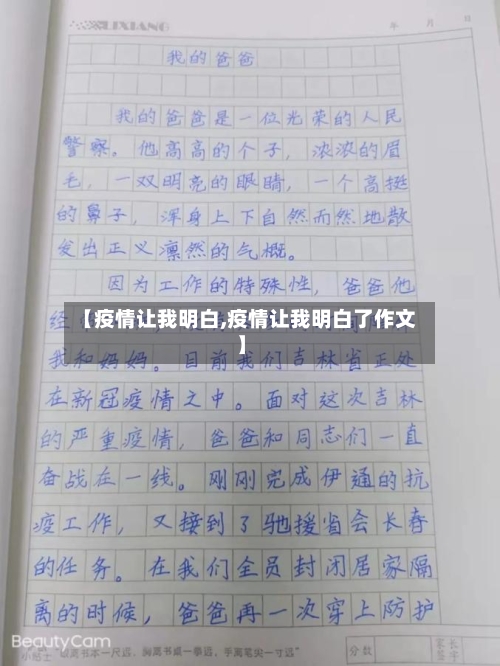 LIXIANG
年 月 日
我的爸爸
我的爸爸是一位光荣的人民
警察。他高高的个子，浓浓的眉
毛，一双明亮的眼睛，一个高挺
的鼻子，浑身上下自然而然地散
发出正义凛然的气概。
因为工作的特殊性，爸爸他
【疫情让我明白,疫情让我明白了作文
】
我和妈妈。目前我们吉林省正处
在新冠疫情之中。面对这次吉林
的严重疫情，爸爸和同志们一直
奋战在一线。刚刚完成伊通的抗
疫工作，又接到了驰援省会长春
的任务。在我们全员封闭居家隔
离的时候，爸爸再一次穿上防护
小贴士 眼离书本一尺远，胸离书桌一拳远，手离笔尖一寸远
分数
家长签字
BeautyCam